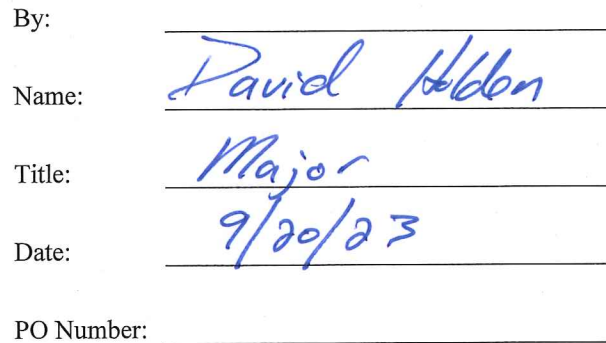 By:
Name: David Holden
Title: Major
Date: 9/20/23
PO Number: